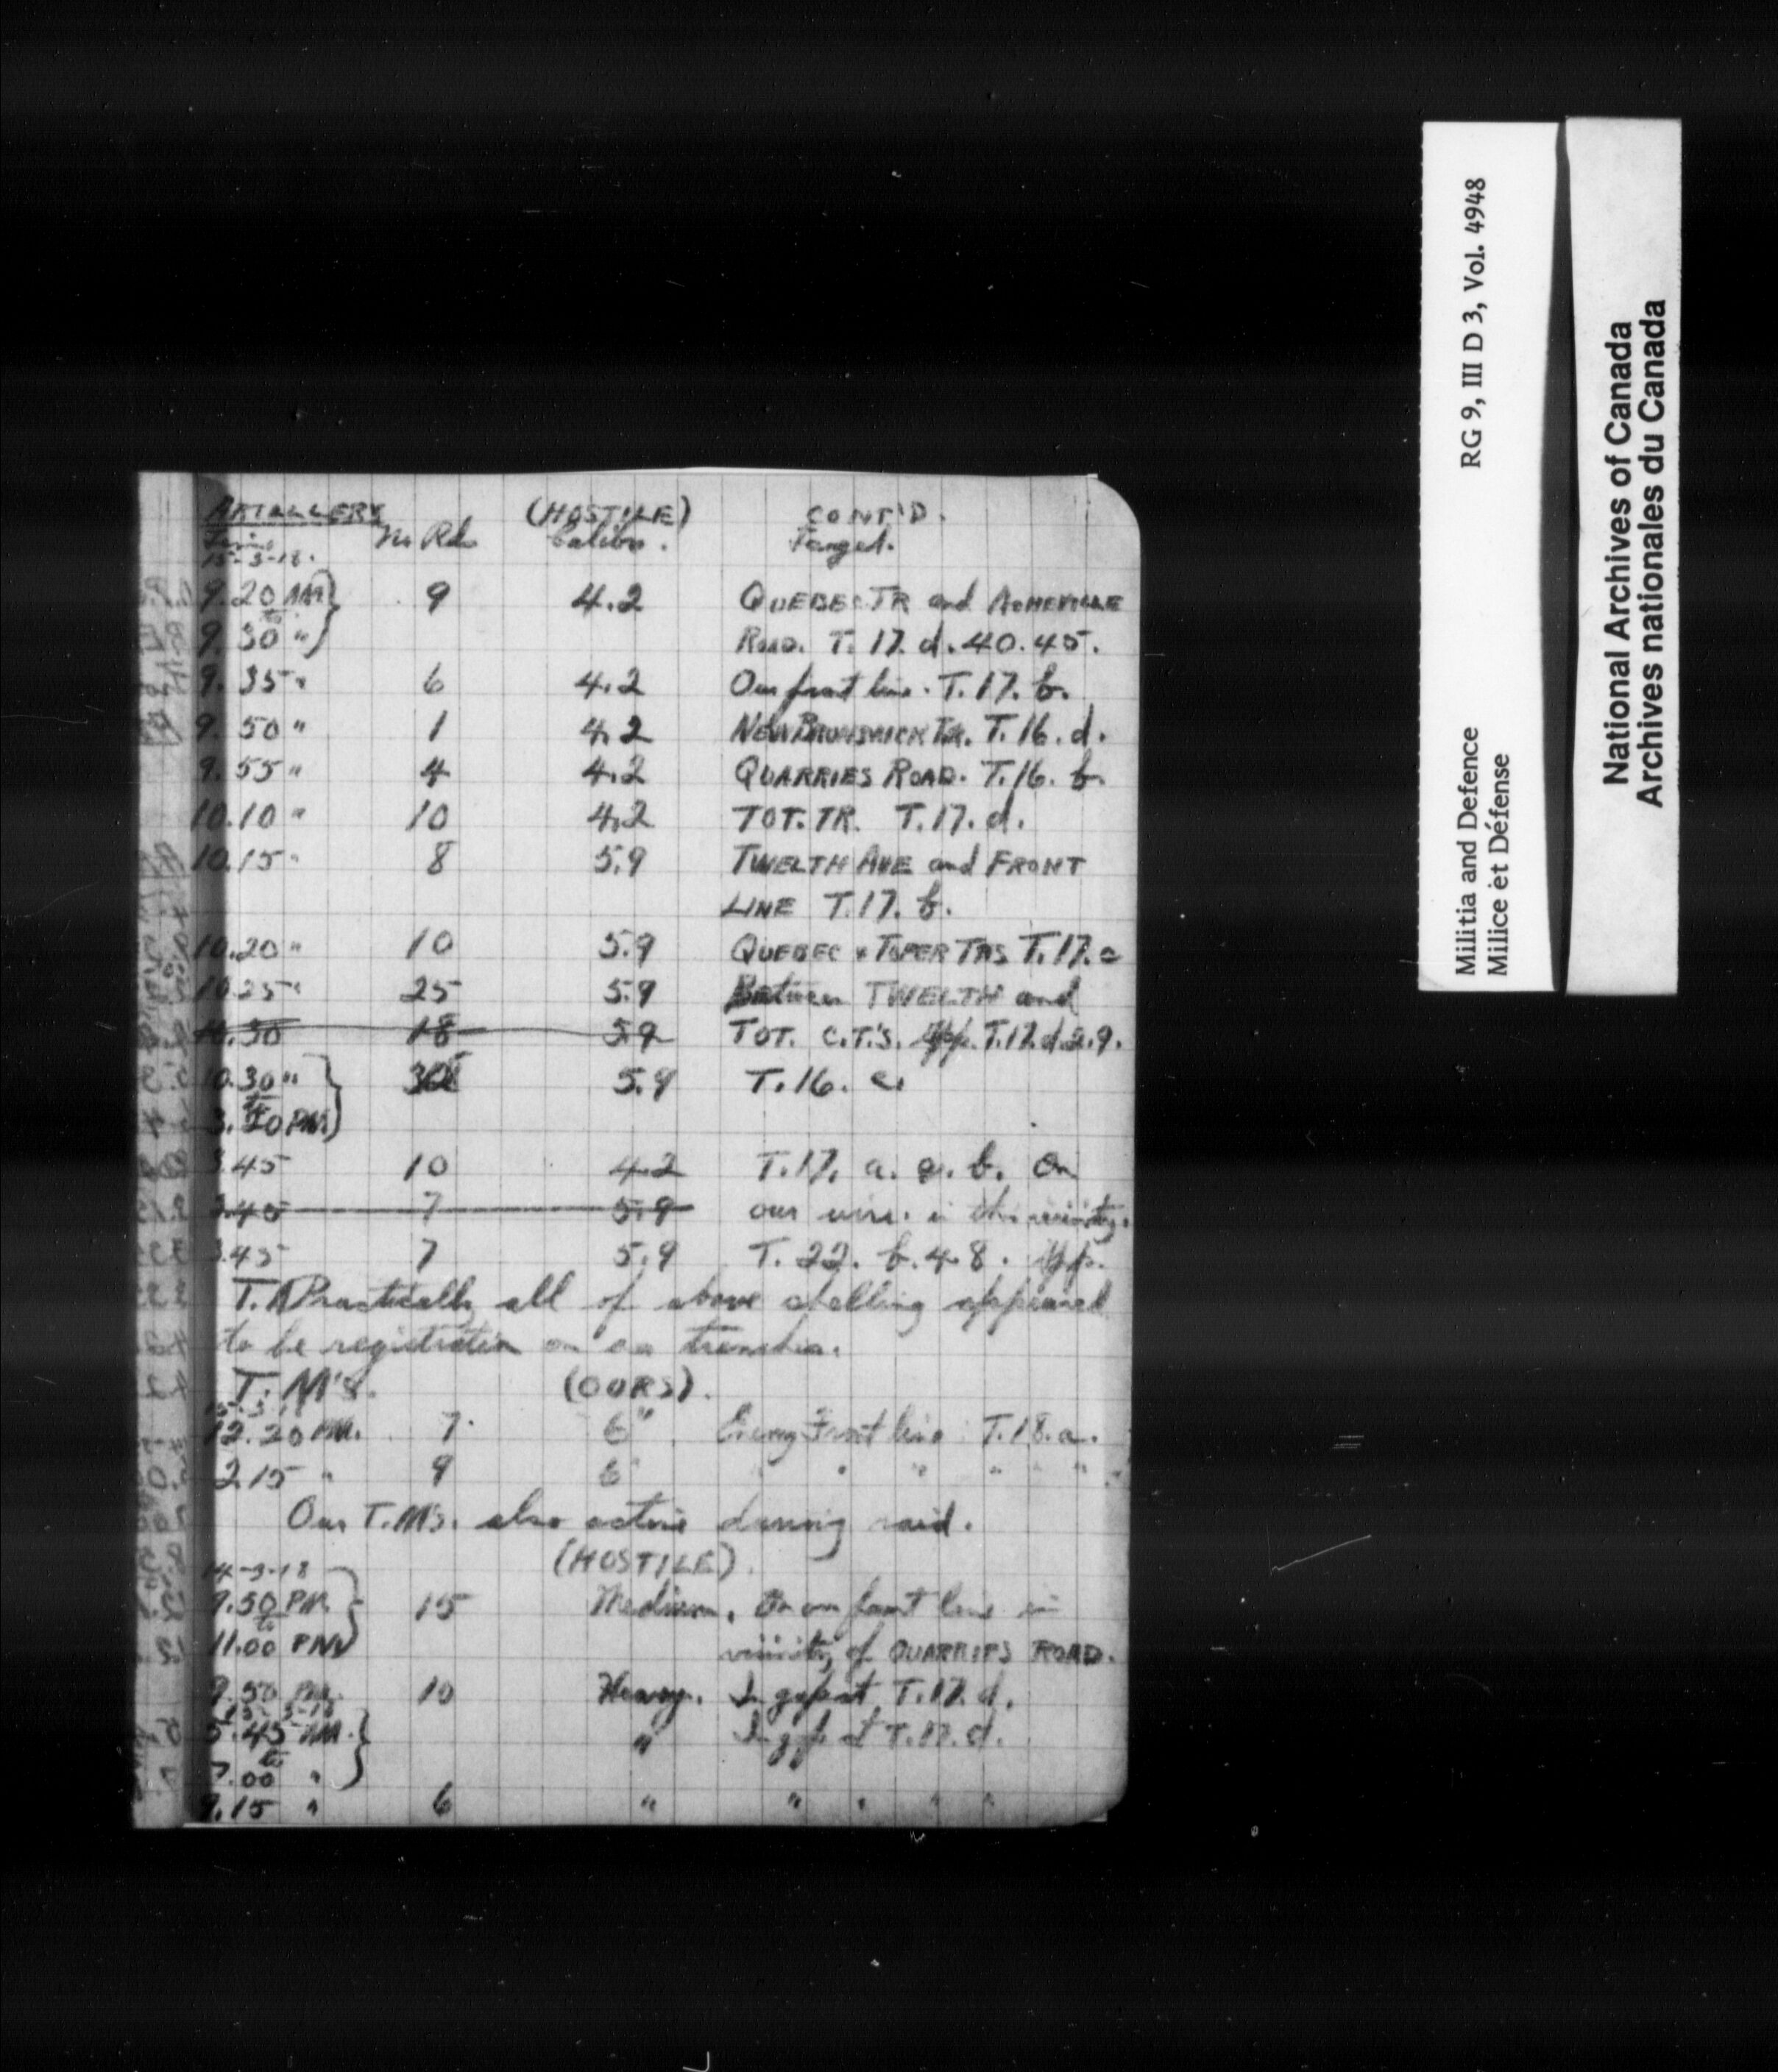 ARTILLERY (HOSTILE) CONT'D.
Time No Rds Calibre. Target.
15-3-18.
9.20 AM 9 4.2 QUEBEC TR and ACHEVILLE
to
9.30 " ROAD. T.17.d.40.45.
9.35 " 6 4.2 Our front line. T.17.b.
9.50 " 1 4.2 NEW BRUNSWICK TR. T.16.d.
9.55 " 4 4.2 QUARRIES ROAD. T.16.b.
10.10 " 10 4.2 TOT. TR. T.17.d.
10.15 " 8 5.9 TWELTH AVE and FRONT
LINE T.17.b.
10.20 " 10 5.9 QUEBEC & TOPER TRS T.17.c
10.25 " 25 5.9 Between TWELTH and
10.30 18 5.9 TOT. C.T.'s. T.17.d.2.9.
10.30 " 5.9 T.16.c.
to
3.20 PM
3.45 10 4.2 T.17. a. b. On
3.45 7 5.9 our wire in this vicinity.
3.45 7 5.9 T.22.b.4.8.
Practically all of above shelling appeared
to be registration on our trenches.
T.M's. (OURS).
15-3-18
12.20 PM. 7 6" Enemy Front line T.18.a.
2.15 " 9 6" " " " " " "
Our T.M's. also active during raid.
(HOSTILE).
14-3-18
9.50 PM. 15 Medium. On our front line in
to
11.00 PM vicinity of QUARRIES ROAD.
9.50 PM. 10 Heavy. In gap at T.17.d.
15-3-18
5.45 AM. " In gap at T.17.d.
to
7.00 "
9.15 " 6 " " " " "
Militia and Defence RG 9, III D 3, Vol. 4948
Milice et Défense
National Archives of Canada
Archives nationales du Canada